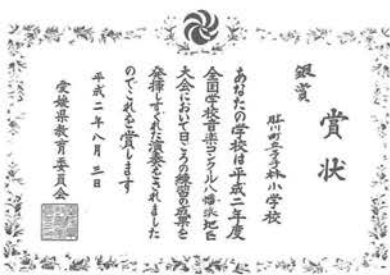 賞状
銀賞
肱川町立予子林小学校
あなたの学校は平成二年度
全国学校音楽コンクール八幡浜地区
大会において日ごろの練習の成果を
発揮しすぐれた演奏をされました
のでこれを賞します
平成二年八月三日
愛媛県教育委員会